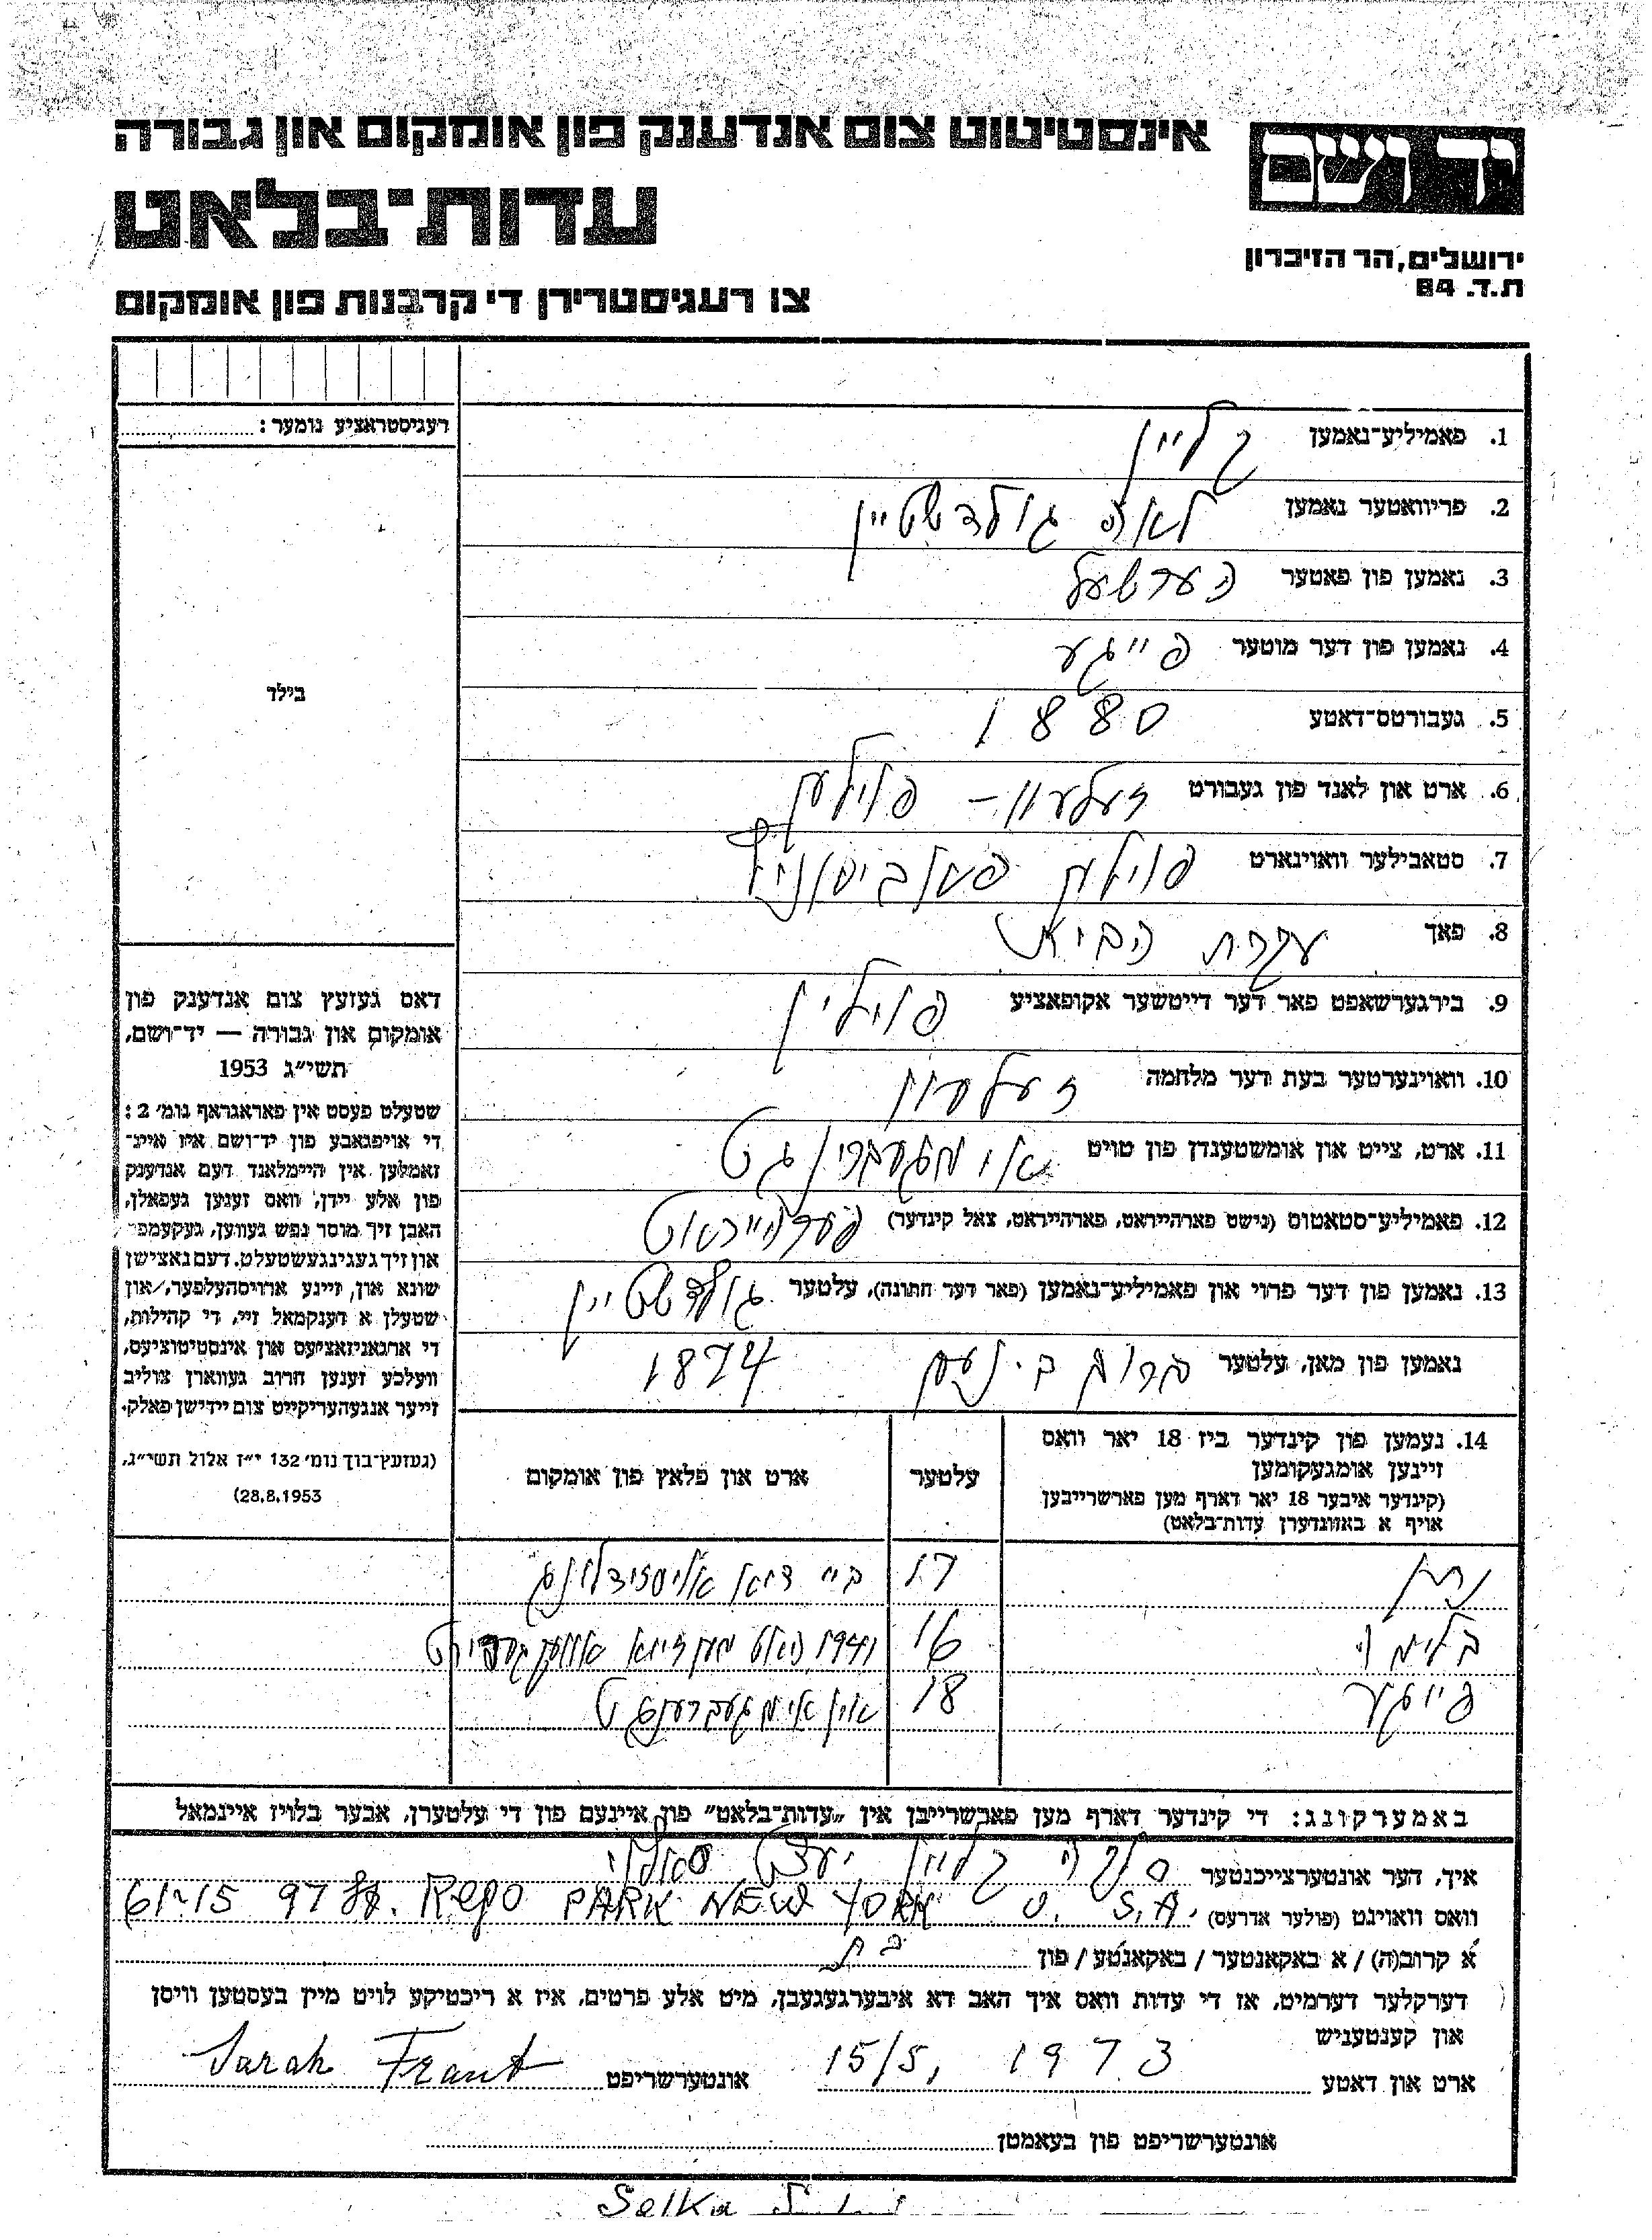 אינסטיטוט צום אנדענק פון אומקום און גבורה
יד ושם
עדות־בלאט
ירושלים, הר הזיכרון
ת.ד. 84
צו רעגיסטרירן די קרבנות פון אומקום
רעגיסטראציע נומער:
בילד
1. פאמיליע־נאמען קליין
2. פריוואטער נאמען לאה גולדשטיין
3. נאמען פון פאטער הערשעל
4. נאמען פון דער מוטער פייגע
5. געבורטס־דאטע 1880
6. ארט און לאנד פון געבורט זעלעוו – פוילען
7. סטאבילער וואוינארט פוילען
8. פאך עקרת הבית
9. בירגערשאפט פאר דער דייטשער אקופאציע פוילין
10. וואוינערטער בעת דער מלחמה
11. ארט, צייט און אומשטענדן פון טויט
12. פאמיליע־סטאטוס (נישט פארהייראט, פארהייראט, צאל קינדער) פערהייראט
13. נאמען פון דער פרוי און פאמיליע־נאמען (פאר דער חתונה), עלטער גולדשטיין
נאמען פון מאן, עלטער 1874
דאס געזעץ צום אנדענק פון
אומקום און גבורה — יד־ושם,
תשי״ג 1953
שטעלט פעסט אין פאראגראף נומ׳ 2:
די אויפגאבע פון יד־ושם איז איינ־
זאמלען אין היימלאנד דעם אנדענק
פון אלע יידן, וואס זענען געפאלן,
האבן זיך מוסר נפש געווען, געקעמפ־
און זיך געגינגעשטעלט. דעם נאצישן
שונא און, זיינע ארויסהעלפער, און
שטעלן א דענקמאל זיי, די קהילות,
די ארגאניזאציעס און אינסטיטוציעס,
וועלכע זענען חרוב געווארן צוליב
זייער אנגעהעריקייט צום יידישן פאלק.
(געזעץ־בוך נומ׳ 132 י״ז אלול תשי״ג,
28.8.1953)
14. נעמען פון קינדער ביז 18 יאר וואס
זיינען אומגעקומען
(קינדער איבער 18 יאר דארף מען פארשרייבן
אויף א באזונדערן עדות־בלאט)
עלטער
ארט און פלאץ פון אומקום
17 ביי
16 1941
18 אין
באמערקונג: די קינדער דארף מען פארשרייבן אין „עדות־בלאט״ פון איינעם פון די עלטערן, אבער בלויז איינמאל
איך, דער אונטערצייכנטער קליין יעצט
וואס וואוינט (פולער אדרעס) 61-15 97 St. Rego PARK NEW YORK U. S. A.
א קרוב(ה) / א באקאנטער / באקאנטע / פון בת
דערקלער דערמיט, אז די עדות וואס איך האב דא איבערגעגעבן, מיט אלע פרטים, איז א ריכטיקע לויט מיין בעסטען וויסן
און קענטעניש
ארט און דאטע 15/5, 1973 אונטערשריפט Sarah Frant
אונטערשריפט פון בעאמטן
Selka